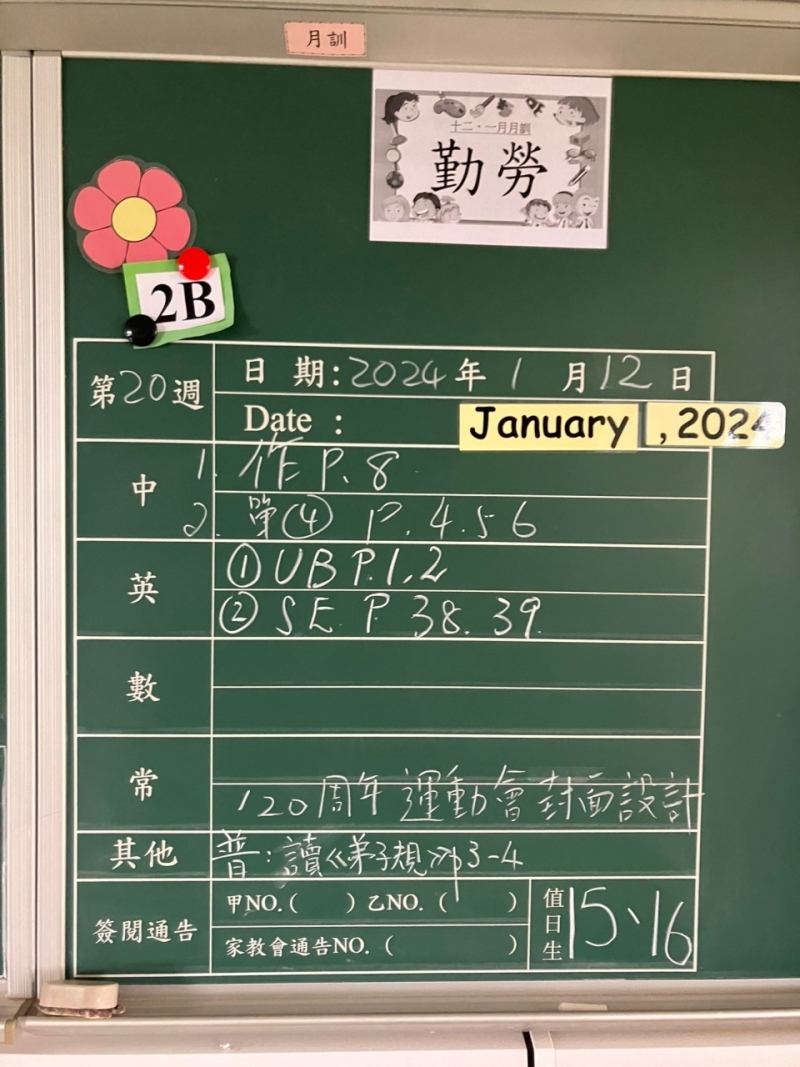 月訓
十二・一月月訓
勤勞
2B
第20週
日 期:2024年 1 月 12 日
Date :
January , 2024
中
1. 作 P. 8
2. 單④ P. 4. 5 6
英
① UB P.1, 2
② SE. P 38. 39
數
常
120周年運動會封面設計
其他
普:讀《弟子規》p3-4
簽閱通告
甲NO.( ) 乙NO.( )
家教會通告NO.( )
值日生
15、16